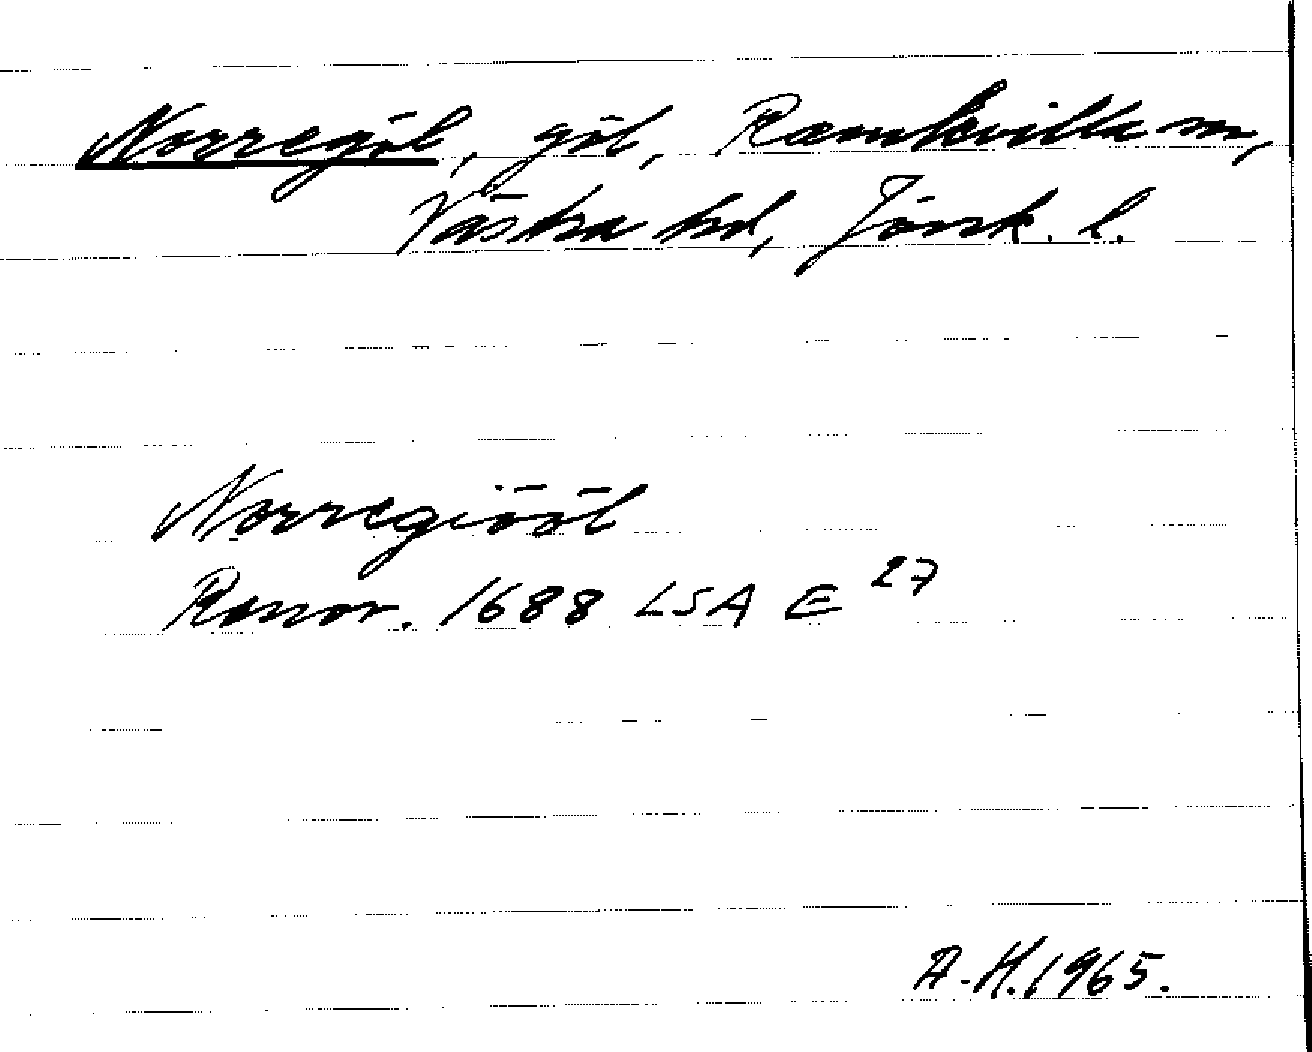 Norregöl, göl, Ramkvilla sn,
Västra hd, Jönk. l.
Norregiööl
Ranov. 1688 LSA E 27
A.H. 1965.